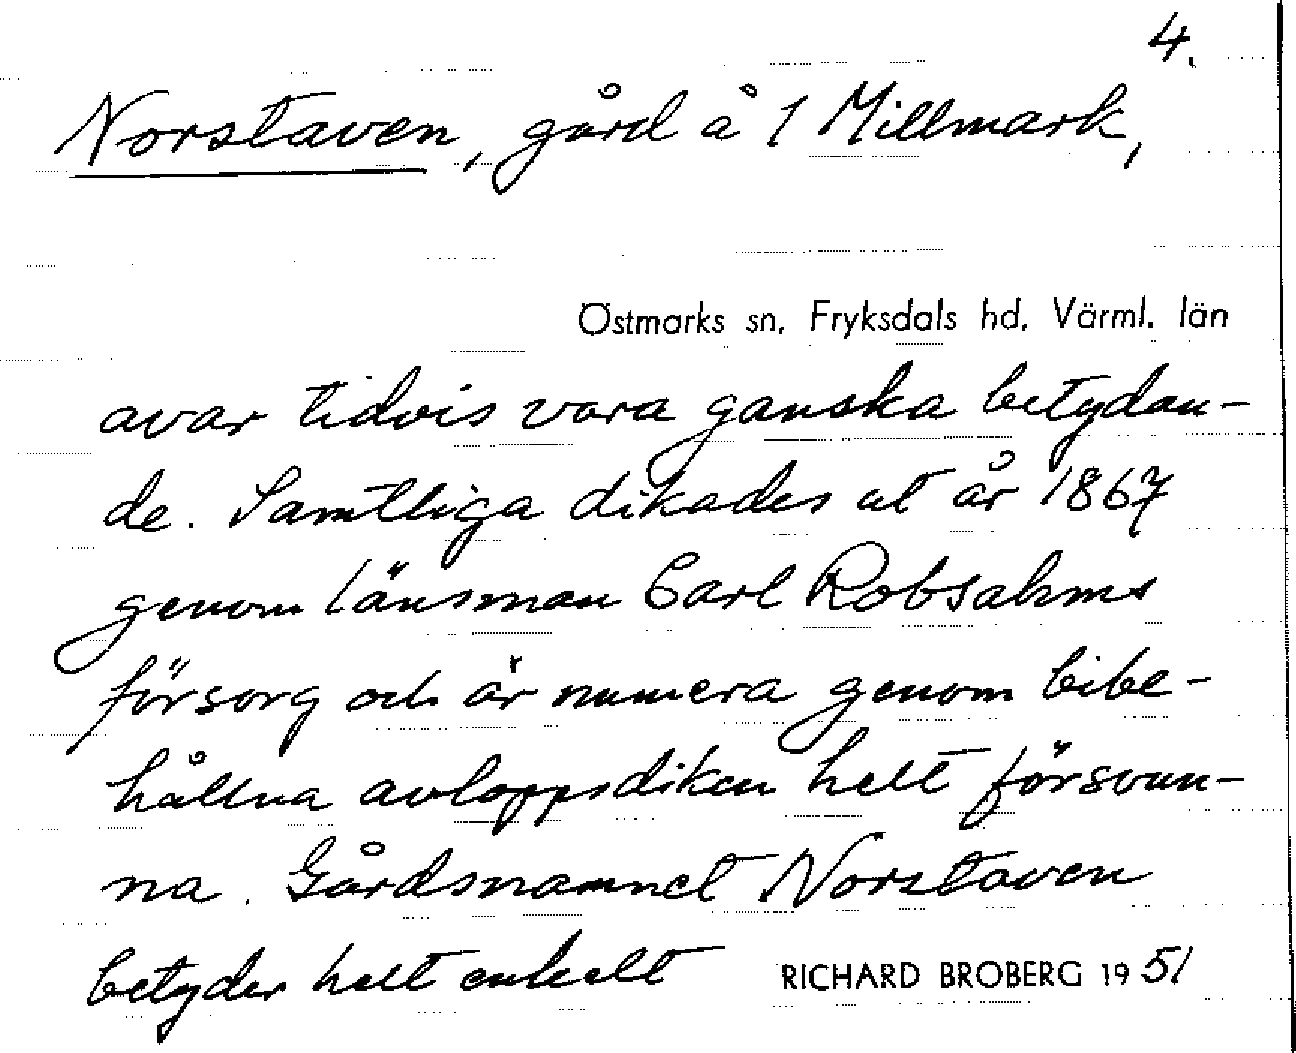 4.
Norstaven, gård å 1 Millmark,
Östmarks sn. Fryksdals hd. Värml. län
avar tidvis vara ganska betydan-
de. Samtliga dikades ut år 1867
genom länsman Carl Robsahms
försorg och är numera genom bibe-
hållna avloppsdiken helt försvun-
na. Gårdsnamnet Norstaven
betyder helt enkelt RICHARD BROBERG 1951